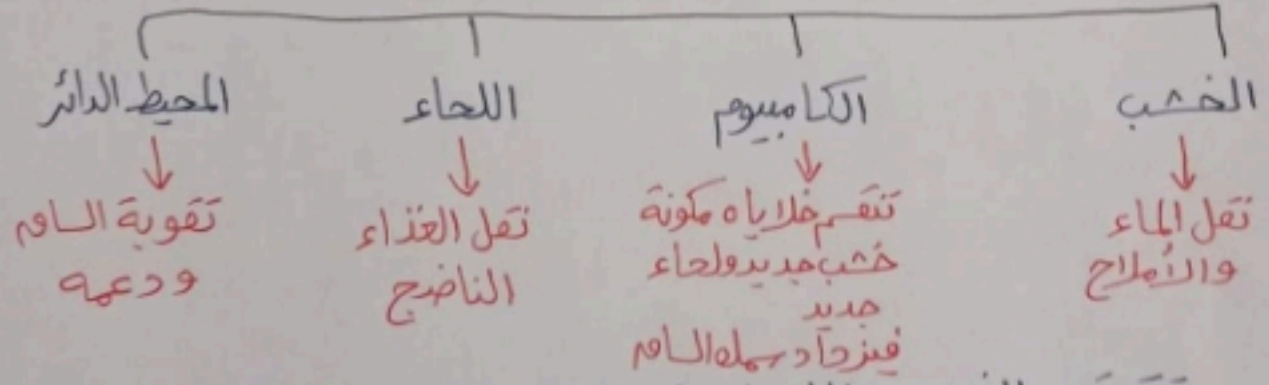 الخشب
نقل الماء
والأملاح
الكامبيوم
تنقسم خلاياه مكونة
خشب جديد ولحاء
جديد
فيزداد سمك الساق
اللحاء
نقل الغذاء
الناضج
المحيط الدائر
تقوية الساق
ودعمه